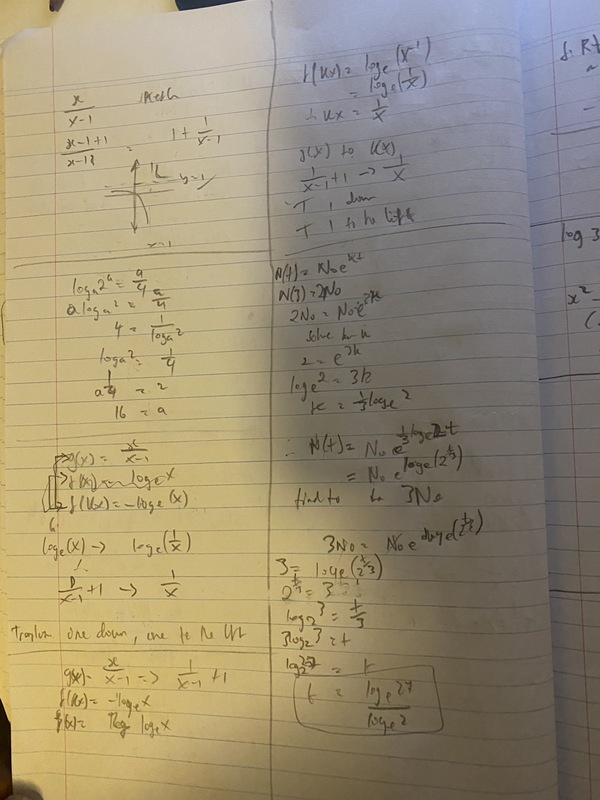 x/(x-1) sketch
(x-1+1)/(x-1) = 1 + 1/(x-1)
y=1
x=1
logₐ2ᵃ = a/4
a logₐ2 = a/4
4 = 1/logₐ2
logₐ2 = 1/4
a^(1/4) = 2
16 = a
g(x) = x/(x-1)
f(x) = logₑx
f(k(x)) = -logₑ(x)
logₑ(x) → logₑ(1/x)
∴
1/(x-1)+1 → 1/x
one down, one to the left
g(x) = x/(x-1) => 1/(x-1) + 1
f(k(x)) = -logₑx
f(x) = logₑx
f(k(x)) = logₑ(x⁻¹)
= logₑ(1/x)
∴ k(x) = 1/x
g(x) to k(x)
1/(x-1)+1 → 1/x
T 1 down
T 1 to the left
N(t) = N₀e^(kt)
N(3) = 2N₀
2N₀ = N₀e^(3k)
solve for k
2 = e^(3k)
logₑ2 = 3k
k = 1/3 logₑ2
∴ N(t) = N₀e^(1/3 logₑ2 t)
= N₀e^(logₑ(2^(t/3)))
find t for 3N₀
3N₀ = N₀e^(logₑ(2^(t/3)))
3 = logₑ(2^(t/3))
2^(t/3) = 3
log₂3 = t/3
3log₂3 = t
log₂27 = t
t = logₑ27/logₑ2
f. R
log 3
x² -
(